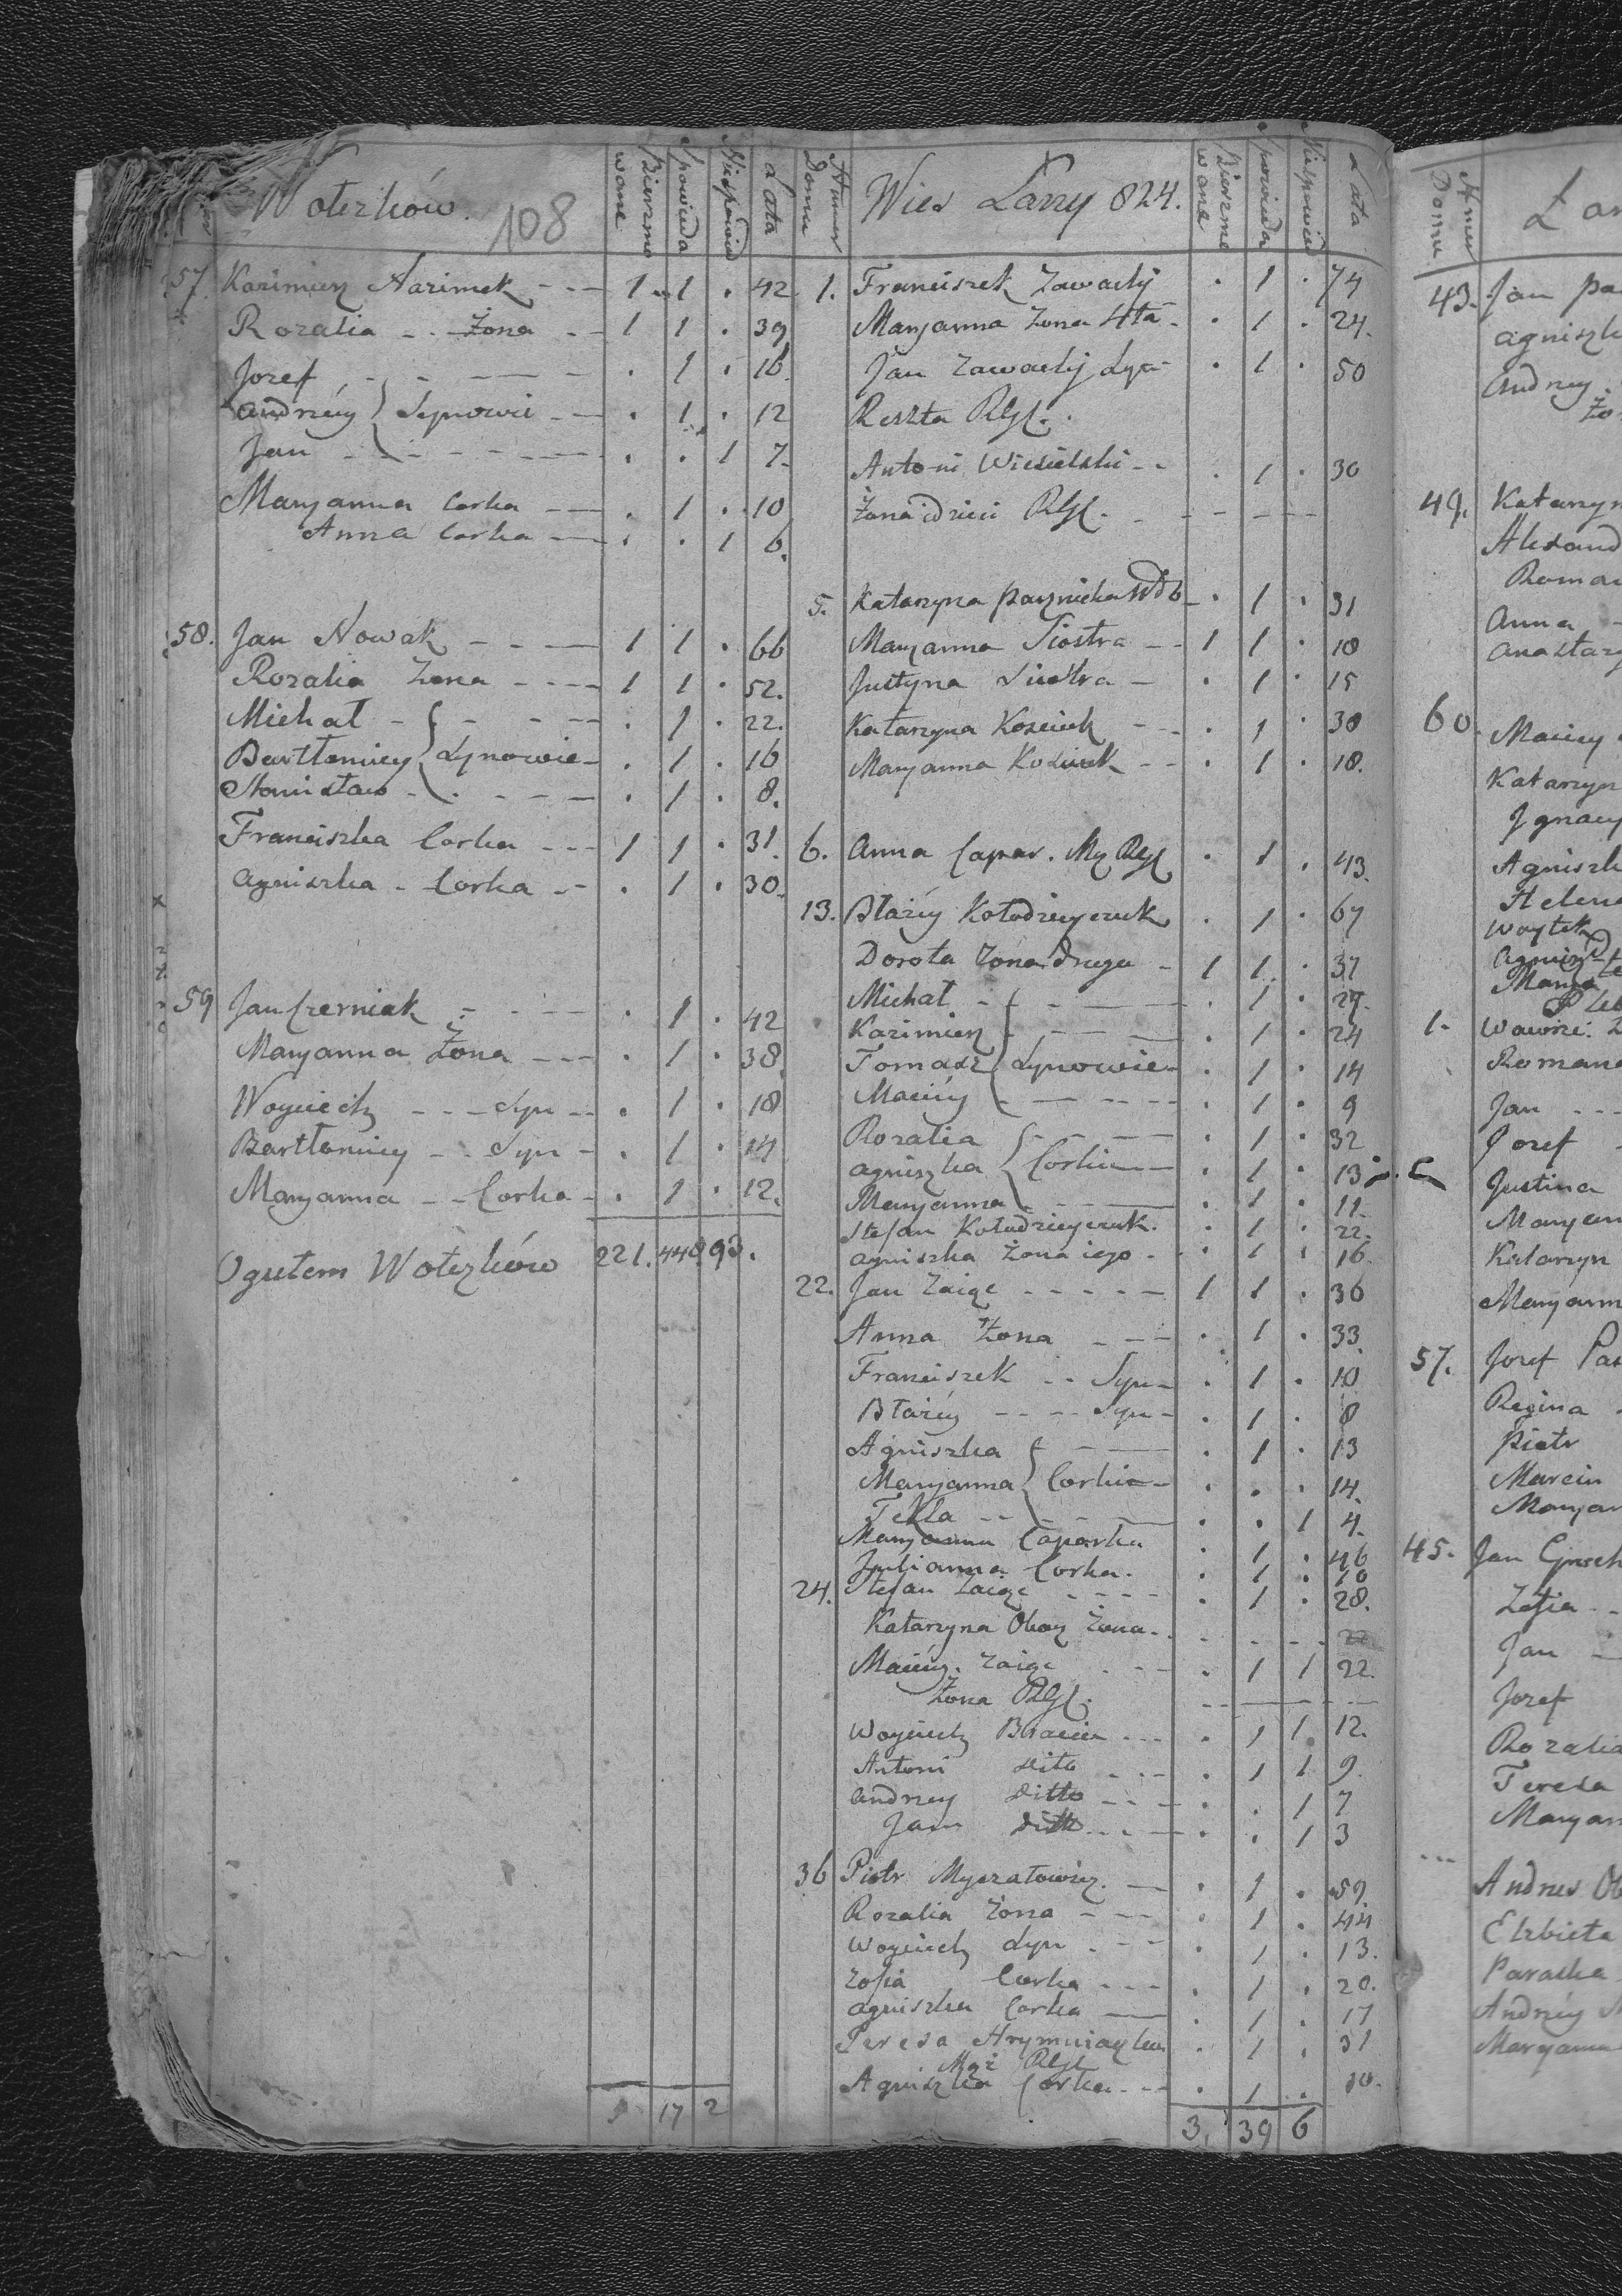 Wołczków. 108
Bierzmowane Spowieda Niespowied Lata
57. Kazimierz Nazimek - - - 1 1 . 42
Rozalia - - Żona - - 1 1 . 39
Jozef - - - . 1 . 16.
Andrzéy Synowie - - . 1 . 12
Jan - - - . . 1 7.
Maryanna Corka - - . 1 . 10
Anna Corka - - . . 1 6.
58. Jan Nowak - - - 1 1 . 66
Rozalia Żona - - - 1 1 . 52.
Michał - - - . 1 . 22.
Bartłomiey Synowie - . 1 . 16
Stanisław - - - . 1 . 8.
Franciszka Corka - - - 1 1 . 31.
Agniszka - Corka - - . 1 . 30.
59 Jan Czerniak - - - . 1 . 42
Maryanna Żona - - - . 1 . 38.
Woyciech - - - Syn - - . 1 . 18
Bartłomiey - - Syn - . 1 . 14
Maryanna - - Corka - . 1 . 12.
Ogułem Wołczków 221. 448. 93.
17 2
Numer Domu
Wies Lany 824.
Bierzmowane Spowieda Niespowied Lata
1. Franciszek Zawadij . 1 . 74
Maryanna Żona 4ta - . 1 . 24.
Jan Zawadij Syn - . 1 . 50
Reszta RGl.
Antoni - - . 1 . 30
Żona i dzieci RGl. - - -
5. Katarzyna . 1 . 31
Maryanna Siostra - - 1 1 . 18
Justyna Siostra - . 1 . 15
Katarzyna Kosciuk - - . 1 . 30
Maryanna Kosciuk - - . 1 . 18.
6. Anna Capar. Mąż RGl . 1 . 43.
13. Błażéy Kołodzieyczuk . 1 . 67
Dorota Żona druga - 1 1 . 37
Michał - - - . 1 . 27.
Kazimierz - - - . 1 . 24
Tomasz Synowie - . 1 . 14
Maciéy - - - . 1 . 9
Rozalia - - - . 1 . 32
Agniszka Corki - . 1 . 13
Maryanna - - . 1 . 11.
Stefan Kołodzieyczuk. . 1 . 22.
Agniszka Żona iego - . 1 . 16.
22. Jan Zaiąc - - - - - 1 1 . 36
Anna Żona - - - . 1 . 33.
Franciszek - - Syn - . 1 . 10
Błażéy - - - Syn - . 1 . 8
Agniszka - - - . 1 . 13
Maryanna Corki - . . . 14.
Tekla - - - . . 1 4.
Maryanna Caparka . 1 . 46
Julianna Corka. . 1 . 10
24. Stefan Zaiąc - - - - . 1 . 28.
Katarzyna Żona - - - - -
Maciéy Zaiąc - - - . 1 1 22.
Żona RGl. - - - -
Woyciech Bracia - - - . 1 1 12.
Antoni dito - - - . 1 1 9.
Andrzey ditto - - - . . 1 7
Jan ditto - - - . . 1 3
36 Piotr Myszałowicz. - . 1 . 59.
Rozalia Żona - - - . 1 . 44
Woyciech Syn - - - . 1 . 13.
Zofia Corka - - - . 1 . 20.
Agniszka Corka - . 1 . 17
Teresa . 1 . 31
Mąż RGl
Agniszka Corka - - - . 1 . 10.
3. 39 6
Numer Domu
Lan
43. Jan
Agniszk
Andrey
49. Katarzyn
Alexand
Roma
Anna -
Anastazy
60. Maciey
Katarzyn
Jgnacy
Agniszk
Helena
Woytek
1. Wawrz:
Roman
Jan - - -
Jozef -
Justina
Maryan
Katarzyn
Maryann
57. Jozef Pas
Regina
Piotr
Marcin
Maryan
45. Jan
Zofia - -
Jan -
Jozef
Rozalia
Teresa
Maryan
Andrus Ob
Elzbieta
Paraska
Andréy
Maryanna